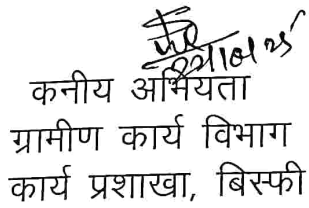 कनीय अभियंता
ग्रामीण कार्य विभाग
कार्य प्रशाखा, बिस्फी